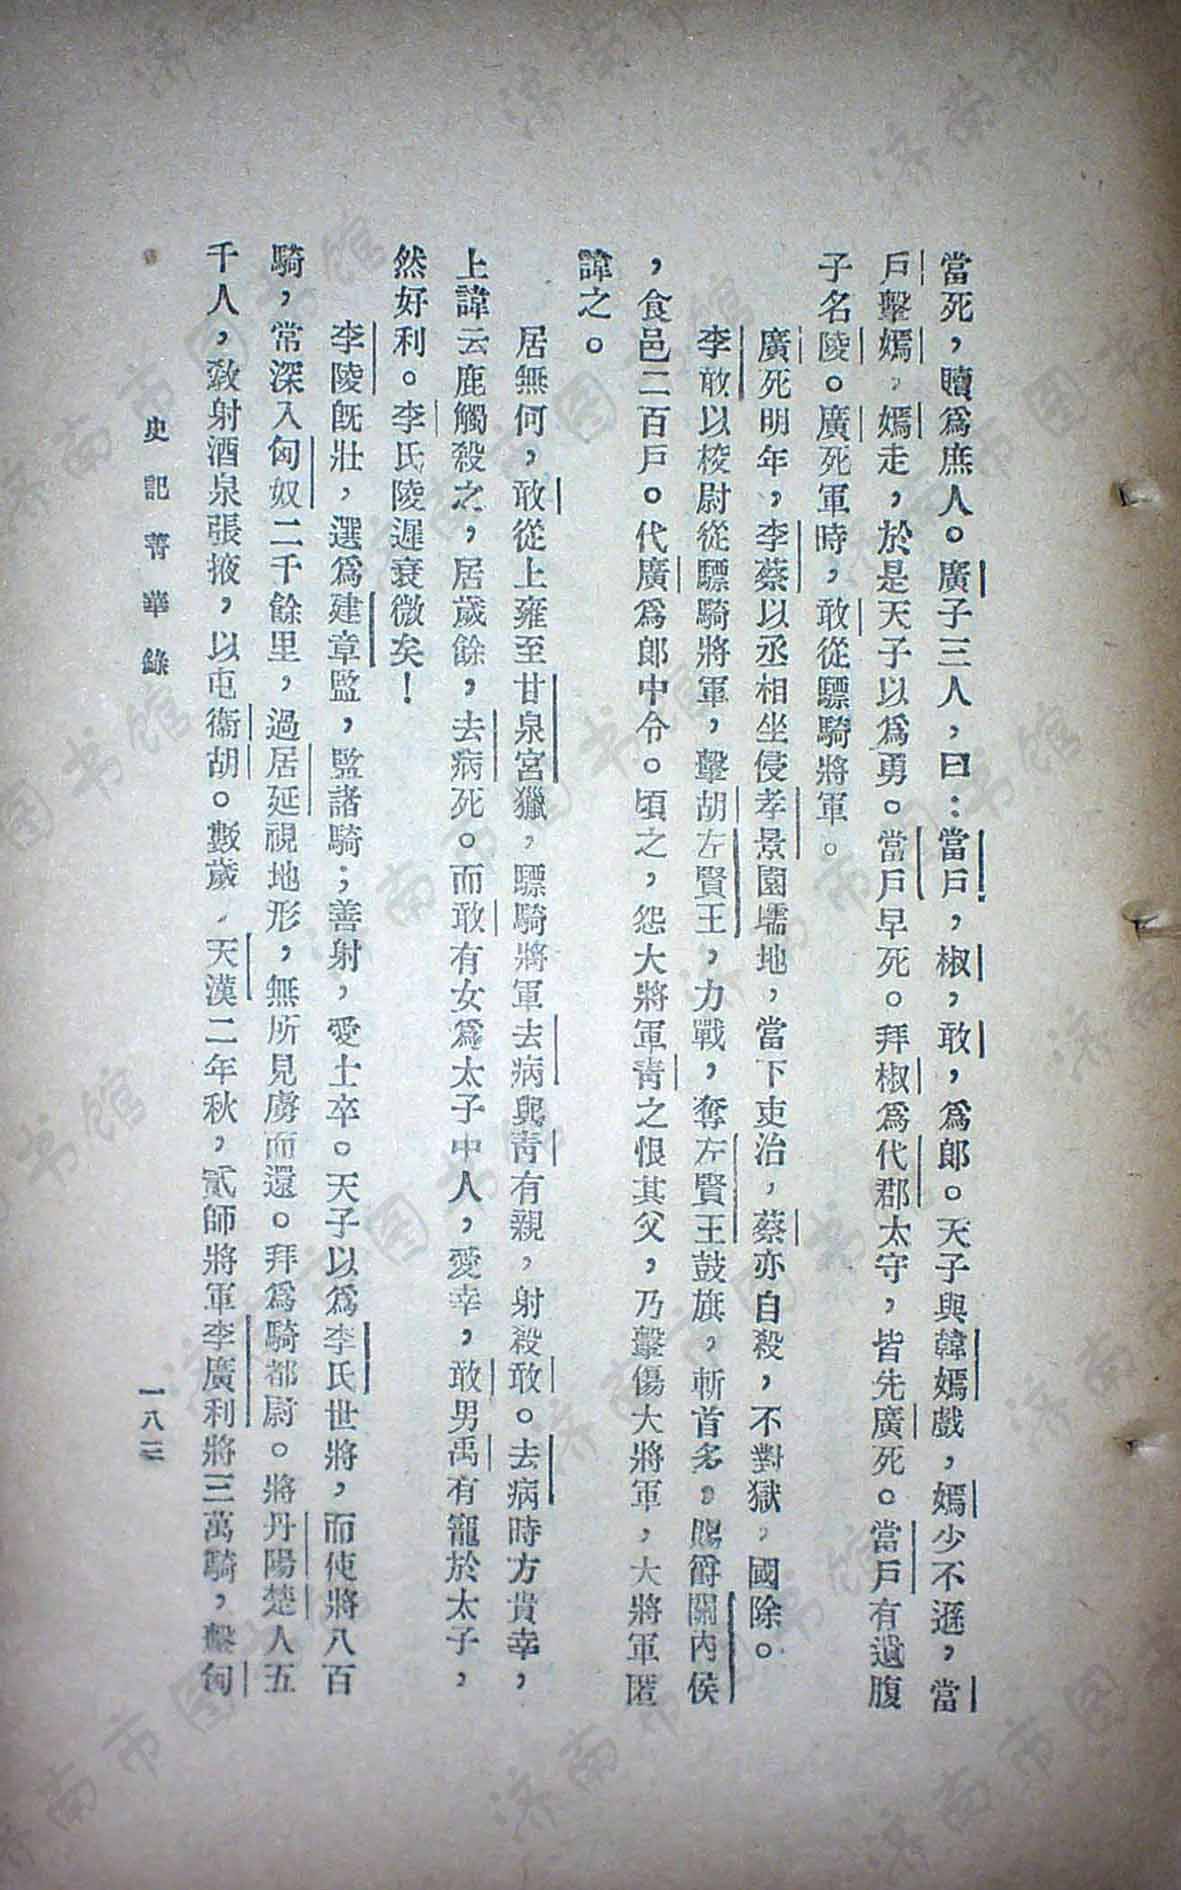 當死，贖爲庶人。廣子三人，曰：當戶，椒，敢，爲郎。天子與韓嫣戲，嫣少不遜，當
戶擊嫣，嫣走，於是天子以爲勇。當戶早死。拜椒爲代郡太守，皆先廣死。當戶有遺腹
子名陵。廣死軍時，敢從驃騎將軍。
廣死明年，李蔡以丞相坐侵孝景園壖地，當下吏治，蔡亦自殺，不對獄，國除。
李敢以校尉從驃騎將軍，擊胡左賢王，力戰，奪左賢王鼓旗，斬首多，賜爵關內侯
，食邑二百戶。代廣爲郎中令。頃之，怨大將軍青之恨其父，乃擊傷大將軍，大將軍匿
諱之。
居無何，敢從上雍至甘泉宮獵，驃騎將軍去病與青有親，射殺敢。去病時方貴幸，
上諱云鹿觸殺之，居歲餘，去病死。而敢有女爲太子中人，愛幸，敢男禹有寵於太子，
然好利。李氏陵遲衰微矣！
李陵既壯，選爲建章監，監諸騎；善射，愛士卒。天子以爲李氏世將，而使將八百
騎，常深入匈奴二千餘里，過居延視地形，無所見虜而還。拜爲騎都尉。將丹陽楚人五
千人，敎射酒泉張掖，以屯衞胡。數歲，天漢二年秋，貳師將軍李廣利將三萬騎，擊匈
史記菁華錄
一八三
济南市图书馆